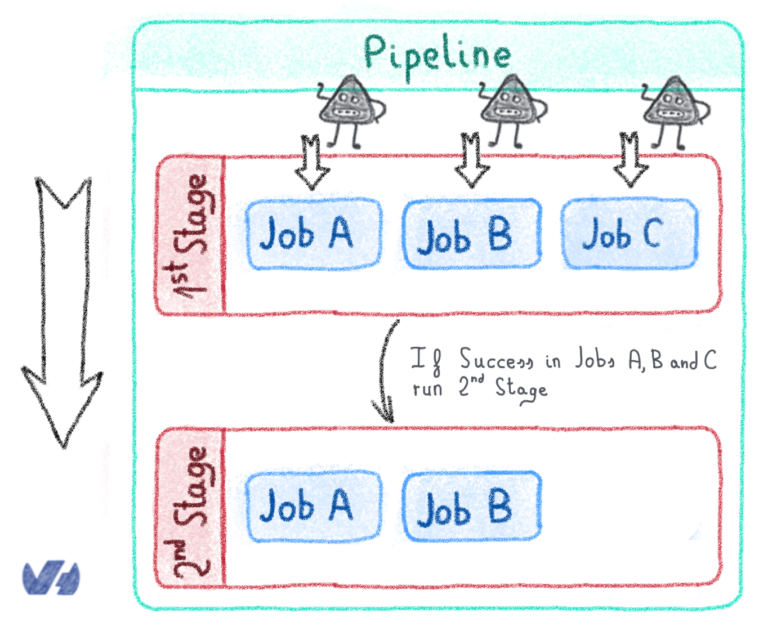 Pipeline
1st Stage
Job A
Job B
Job C
If Success in Jobs A, B and C
run 2nd Stage
2nd Stage
Job A
Job B